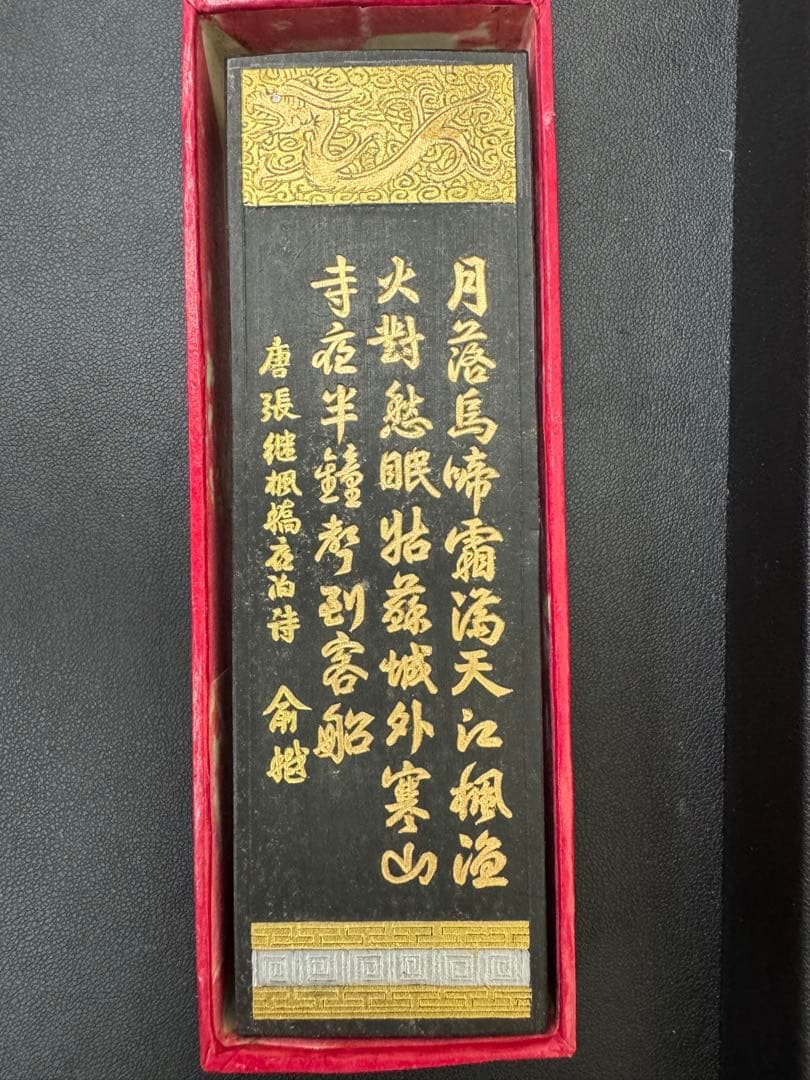 月落烏啼霜滿天江楓漁
火對愁眠姑蘇城外寒山
寺夜半鐘聲到客船
唐張继楓橋夜泊詩　俞樾